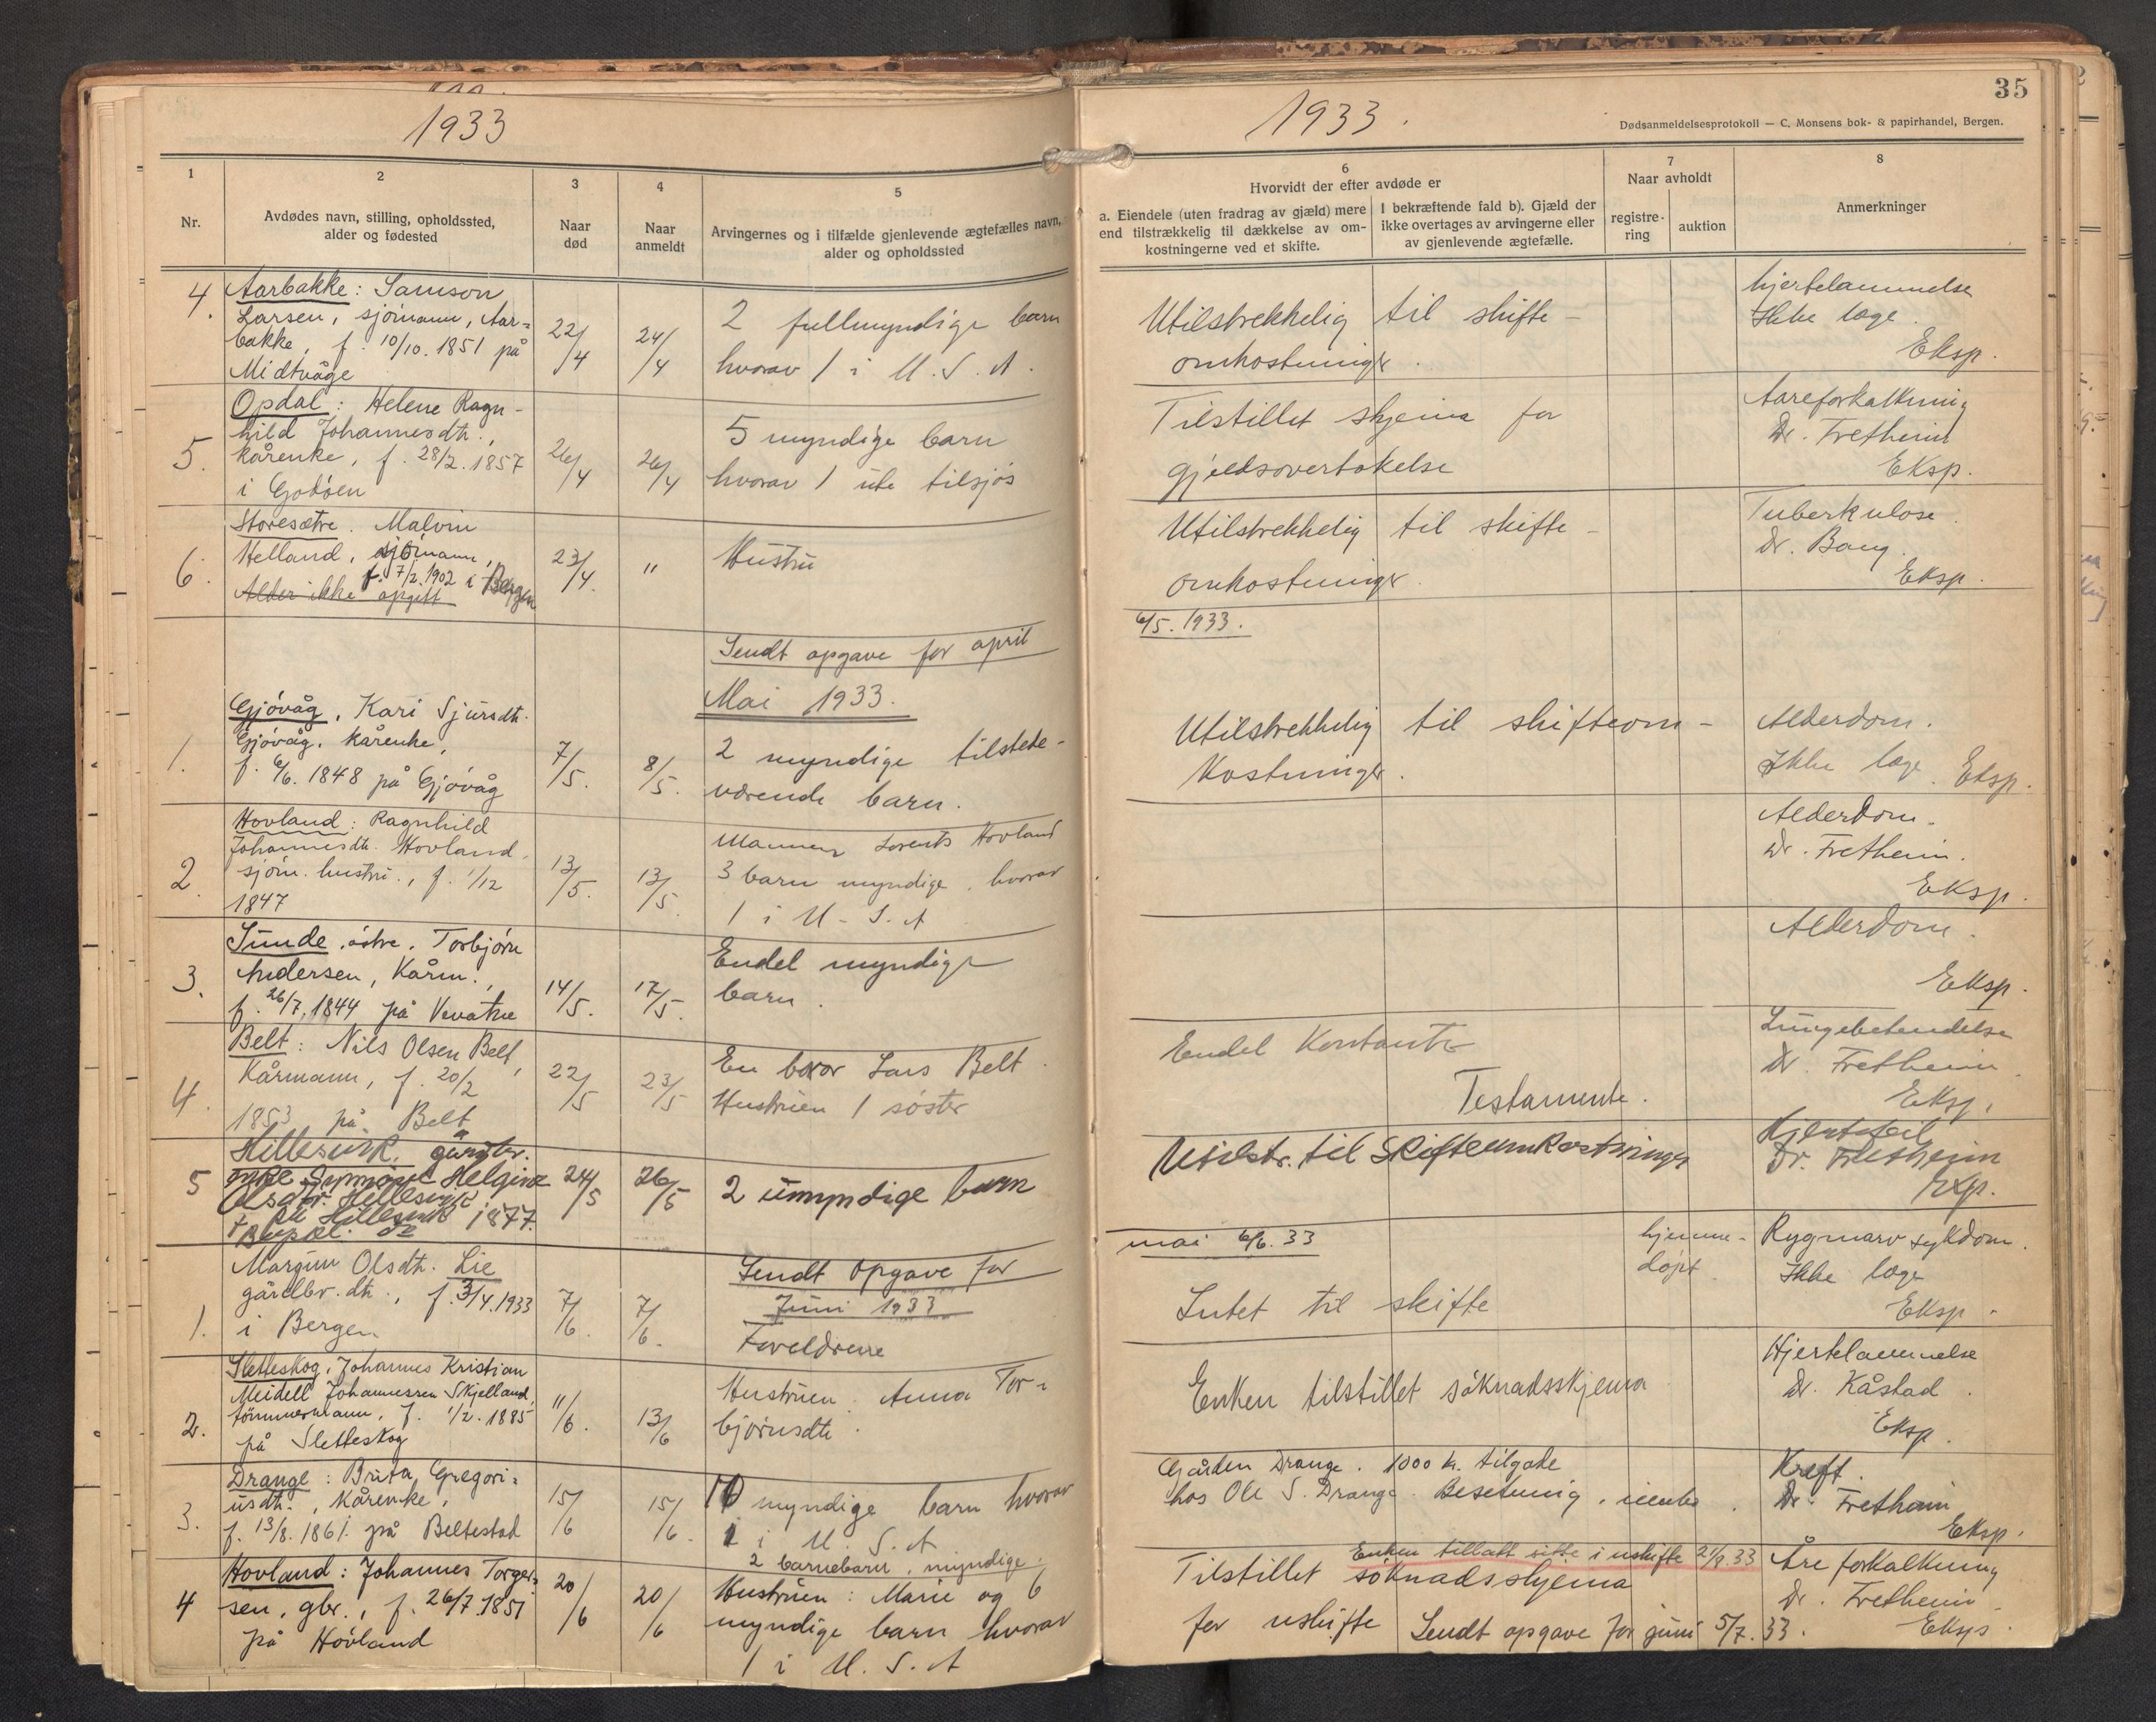 1933
1
2
3
4
5
Nr.
Avdødes navn, stilling, opholdssted,
alder og fødested
Naar
død
Naar
anmeldt
Arvingernes og i tilfælde gjenlevende ægtefælles navn,
alder og opholdssted
4. Aarbakke: Samson
Larsen, sjømann, Aar=
bakke, f. 10/10. 1851 på
Midtvåge
22/4
24/4
2 fullmyndige barn
hvorav 1 i U.S.A.
5. Opdal: Helene Ragn-
hild Johannesdtr.,
kårenke, f. 28/2. 1857
i Godøen
26/4
26/4
5 myndige barn
hvorav 1 ute tilsjøs
6. Storesætre. Malvin
Helland, sjømann,
f. 7/2. 1902 i Bergen
Alder ikke opgitt
23/4.
"
Hustru
Sendt opgave for april
Mai 1933.
1. Gjøvåg, Kari Sjursdtr.
Gjøvåg, Kårenke,
f. 6/6. 1848 på Gjøvåg
7/5.
8/5.
2 myndige tilstede-
værende barn.
2. Hovland: Ragnhild
Johannesdtr. Hovland,
sjøm. hustru., f. 1/12
1847
13/5.
13/5.
Mannen Lorents Hovland
3 barn myndige, hvorav
1 i U-S.A
3. Sunde, østre. Torbjørn
Andersen, Kårm.,
f. 26/7. 1844 på Vevatne
14/5.
17/5.
Endel myndige
barn.
4. Belt: Nils Olsen Belt,
Kårmann, f. 20/2
1853 på Belt
22/5
23/5
En bror Lars Belt.
Hustruen 1 søster
5 Hillesvik, gårdbr.
enke Synnøve Helgine
Olsdtr. Hillesvik
på Hillesvik 1877.
24/5
26/5
2 umyndige barn
Sendt opgave for
Juni 1933
1. Margun Olsdtr. Lie
gårdbr. dtr., f. 3/4. 1933
i Bergen
7/6.
7/6.
Foreldrene
2. Sletteskog, Johannes Kristian
Meidell Johannessen Skjelland,
tømmermann, f. 1/2. 1885
på Sletteskog
11/6.
13/6
Hustruen Anna Tor-
bjørnsdtr.
3. Drange: Brita Gregori=
usdtr., Kårenke,
f. 13/8. 1861. på Beltestad
15/6
15/6.
10 myndige barn hvorav
1 i U.S.A
2 barnebarn, myndige.
4 Hovland: Johannes Torger=
sen, gbr., f. 26/7. 1851
på Hovland
20/6
20/6
Hustruen: Marie og 6
myndige barn hvorav
1 i U.S.A
35
1933.
Dødsanmeldelsesprotokoll — C. Monsens bok- & papirhandel, Bergen.
6
Hvorvidt der efter avdøde er
a. Eiendele (uten fradrag av gjæld) mere
end tilstrækkelig til dækkelse av om-
kostningerne ved et skifte.
I bekræftende fald b). Gjæld der
ikke overtages av arvingerne eller
av gjenlevende ægtefælle.
7
Naar avholdt
registre-
ring
auktion
8
Anmerkninger
Utilstrekkelig til skifte-
omkostninger.
hjertelammelse
Ikke læge.
Eksp.
Tilstillet skjema for
gjeldsovertakelse
Aareforkalkning
Dr. Fretheim
Eksp.
Utilstrekkelig til skifte-
omkostninger.
Tuberkulose.
Dr. Bang.
Eksp.
6/5. 1933.
Utilstrekkelig til skifteom-
kostninger.
Alderdom.
Ikke læge. Eksp.
Alderdom.
Dr. Fretheim.
Eksp.
Alderdom.
Eksp.
Endel Kontanter
Testamente.
Lungebetendelse
Dr. Fretheim.
Eksp.
Utilstr. til Skifteomkostninger
Hjertefeil
Dr. Fretheim
Exp.
mai 6/6. 33
Intet til skifte
hjemme-
døpt
Rygmarv sykdom.
Ikke læge
Eksp.
Enken tilstillet søknadsskjema
Hjertelammelse
Dr. Kåstad.
Eksp.
Gården Drange. 1000 kr. tilgode
hos Ole S. Drange. Besetning,
Kreft.
Dr. Fretheim
Eksp.
Enken tillatt sitte i uskifte 21/9. 33
Tilstillet søknadsskjema
for uskifte
Sendt opgave for juni 5/7. 33.
Åreforkalkning
Dr. Fretheim.
Eksp.